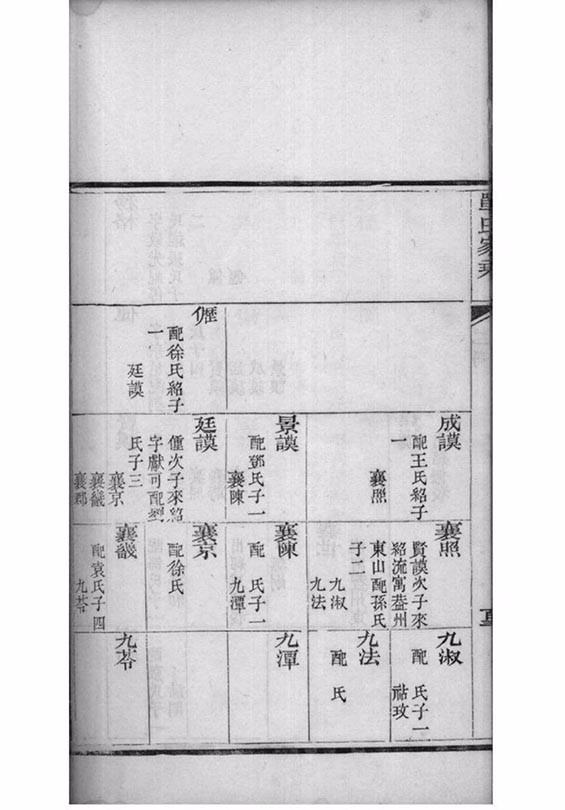 氏家乘
配徐氏紹子
一
廷謨
成謨
配王氏紹子
一
襄熙
景謨
配鄧氏子一
襄陳
廷謨
次子來紹
字獻可配
氏子三
襄京
襄畿
襄郡
襄熙
賢謨次子來
紹流寓蓋州
東山配孫氏
子二
九淑
九法
襄陳
配 氏子一
九潭
襄京
配徐氏
襄畿
配袁氏子四
九苓
九淑
配 氏子一
玫
九法
配 氏
九潭
九苓